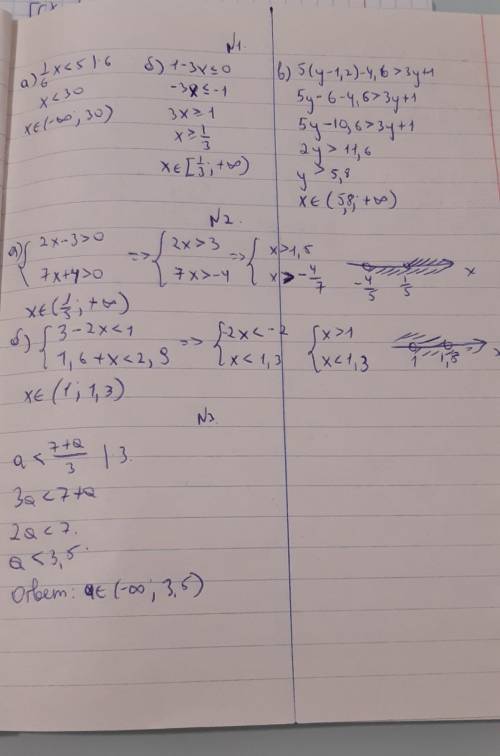 N1.
а) 1/6 x < 5 | · 6
x < 30
x ∈ (-∞; 30)
б) 1-3x ≤ 0
-3x ≤ -1
3x ≥ 1
x ≥ 1/3
x ∈ [1/3; +∞)
в) 5(y-1,2)-4,6 > 3y+1
5y-6-4,6 > 3y+1
5y-10,6 > 3y+1
2y > 11,6
y > 5,8
x ∈ (5,8; +∞)
N2.
а) { 2x-3>0 => { 2x>3 => { x>1,5
7x+4>0 7x>-4 x>-4/7
-4/5 1/5 x
x ∈ (1/5; +∞)
б) { 3-2x<1 => { -2x<-2 { x>1
1,6+x<2,9 x<1,3 x<1,3
1 1,3 x
x ∈ (1; 1,3)
N3
a < 7+a/3 | 3
3a < 7+a
2a < 7.
a < 3,5.
Ответ: a ∈ (-∞; 3,5)